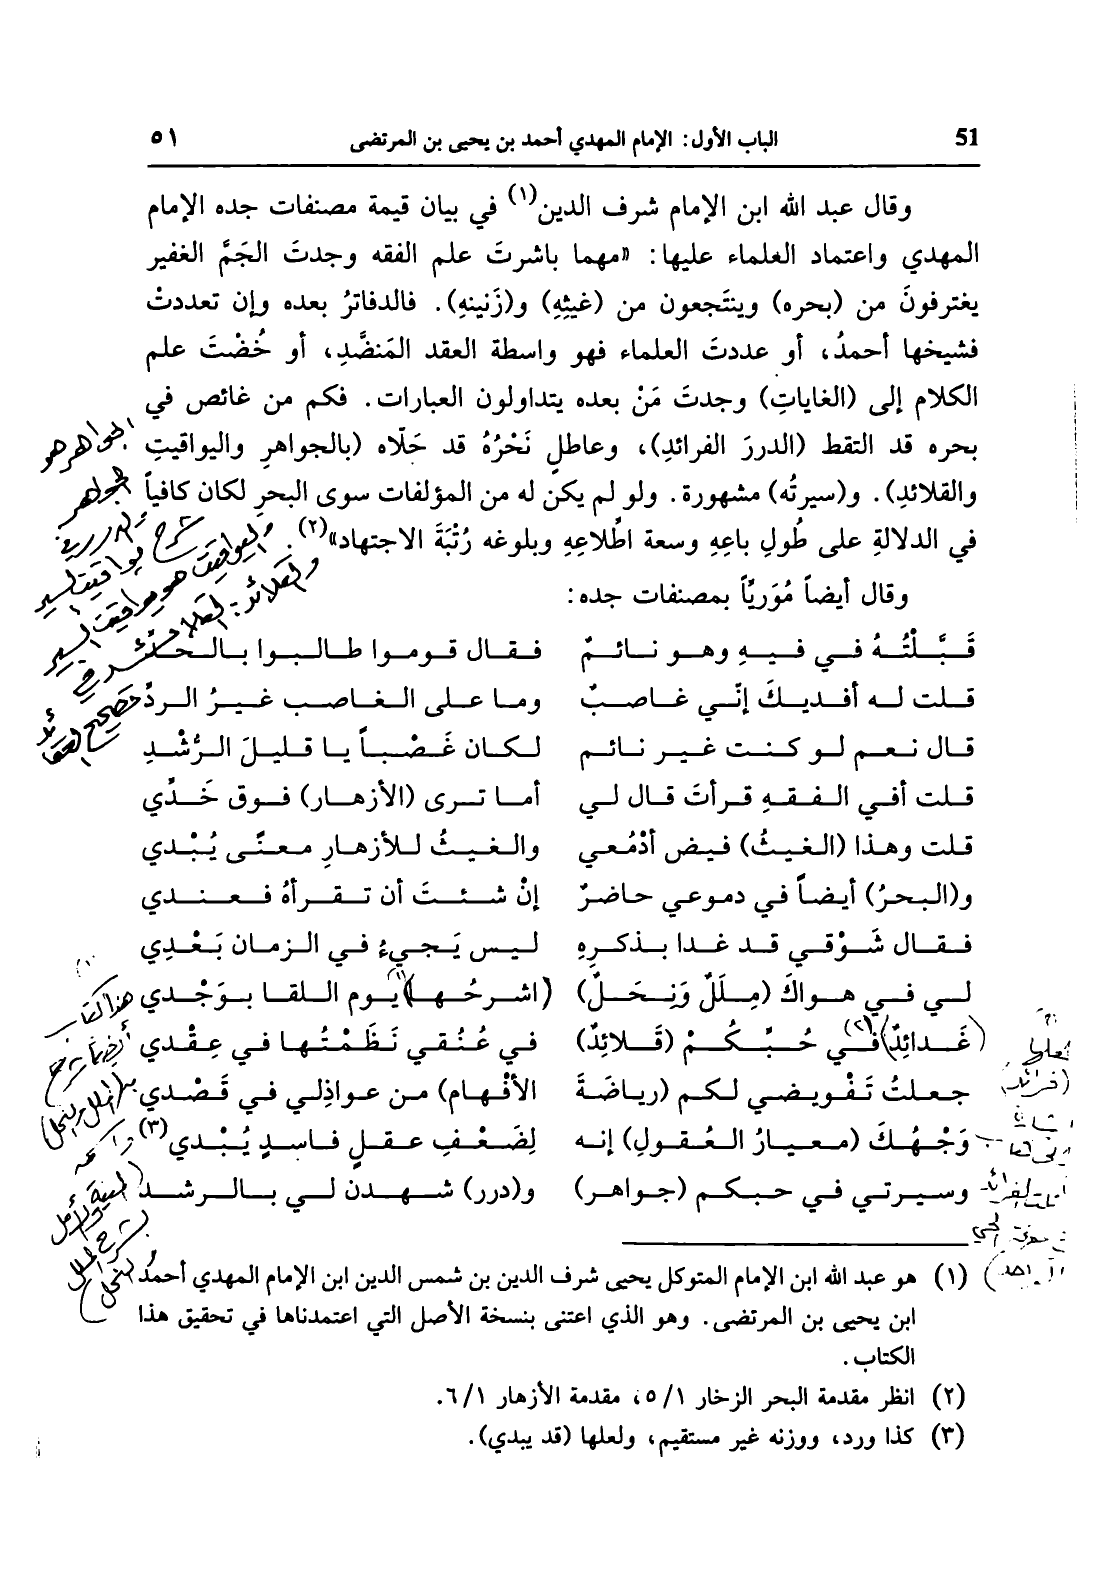 51 الباب الأول: الإمام المهدي أحمد بن يحيى بن المرتضى ٥١
وقال عبد الله ابن الإمام شرف الدين(١) في بيان قيمة مصنفات جده الإمام
المهدي واعتماد العلماء عليها: «مهما باشرتَ علم الفقه وجدتَ الجَمَّ الغفير
يغترفونَ من (بحره) وينتَجعون من (غيثِهِ) و(زَنينهِ). فالدفاترُ بعده وإن تعددتْ
فشيخها أحمدُ، أو عددتَ العلماء فهو واسطة العقد المَنضَّدِ، أو خُضْتَ علم
الكلام إلى (الغاياتِ) وجدتَ مَنْ بعده يتداولون العبارات. فكم من غائص في
بحره قد التقط (الدررَ الفرائدِ)، وعاطلٍ نَحْرُهُ قد حَلّاه (بالجواهرِ واليواقيتِ
والقلائدِ). و(سيرتُه) مشهورة. ولو لم يكن له من المؤلفات سوى البحرِ لكان كافياً
في الدلالةِ على طُولِ باعِهِ وسعة اطّلاعِهِ وبلوغه رُتْبَةَ الاجتهاد»(٢).
وقال أيضاً مُوَريّاً بمصنفات جده:
قَبَّلْتُهُ في فيهِ وهو نائمٌ فقال قوموا طالبوا بالحدِّ
قلت له أفديكَ إنّي غاصبٌ وما على الغاصب غيرُ الردِّ
قال نعم لو كنت غير نائم لكان غَصْباً يا قليلَ الرُّشْدِ
قلت أفي الفقهِ قرأتَ قال لي أما ترى (الأزهار) فوق خَدِّي
قلت وهذا (الغيثُ) فيض أدْمُعي والغيثُ للأزهارِ معنًى يُبْدي
و(البحرُ) أيضاً في دموعي حاضرٌ إنْ شئتَ أن تقرأهُ فعندي
فقال شَوْقي قد غدا بذكرِهِ ليس يَجيءُ في الزمان بَعْدِي
لي في هواكَ (مِلَلٌ وَنِحَلٌ) (اشرحُها)(١) يوم اللقا بوَجْدي
(غَدائِدٌ)(٢) في حُبِّكُمْ (قَلائِدٌ) في عُنُقي نَظَمْتُها في عِقْدي
جعلتُ تَفْويضي لكم (رياضَةَ الأفْهام) من عواذِلي في قَصْدي
وَجْهُكَ (معيارُ العُقولِ) إنه لِضَعْفِ عقلٍ فاسدٍ يُبْدي(٣)
وسيرتي في حبكم (جواهر) و(درر) شهدن لي بالرشد
(١) هو عبد الله ابن الإمام المتوكل يحيى شرف الدين بن شمس الدين ابن الإمام المهدي أحمدُ
ابن يحيى بن المرتضى. وهو الذي اعتنى بنسخة الأصل التي اعتمدناها في تحقيق هذا
الكتاب.
(٢) انظر مقدمة البحر الزخار ٥/١، مقدمة الأزهار ٦/١.
(٣) كذا ورد، ووزنه غير مستقيم، ولعلها (قد يبدي).
الجواهر هو
الجواهر
والدرر
شرح
هذا كتاب
أيضا شرح
الملل والنحل
المنية والأمل
بشرح الملل
والنحل)